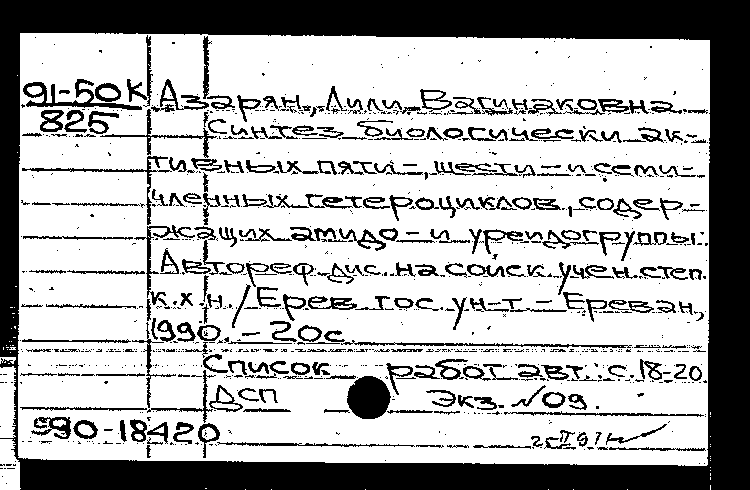 91-50К Азарян, Лили Вагинаковна
825 Синтез биологически ак-
тивных пяти-, шести- и семи-
членных гетероциклов, содер-
жащих амидо- и уреидогруппы:
Автореф. дис. на соиск. учен. степ.
к.х.н. / Ерев. гос. ун-т - Ереван,
1990. - 20с
Список работ авт.: с. 18-20
ДСП Экз. №09.
90-18420